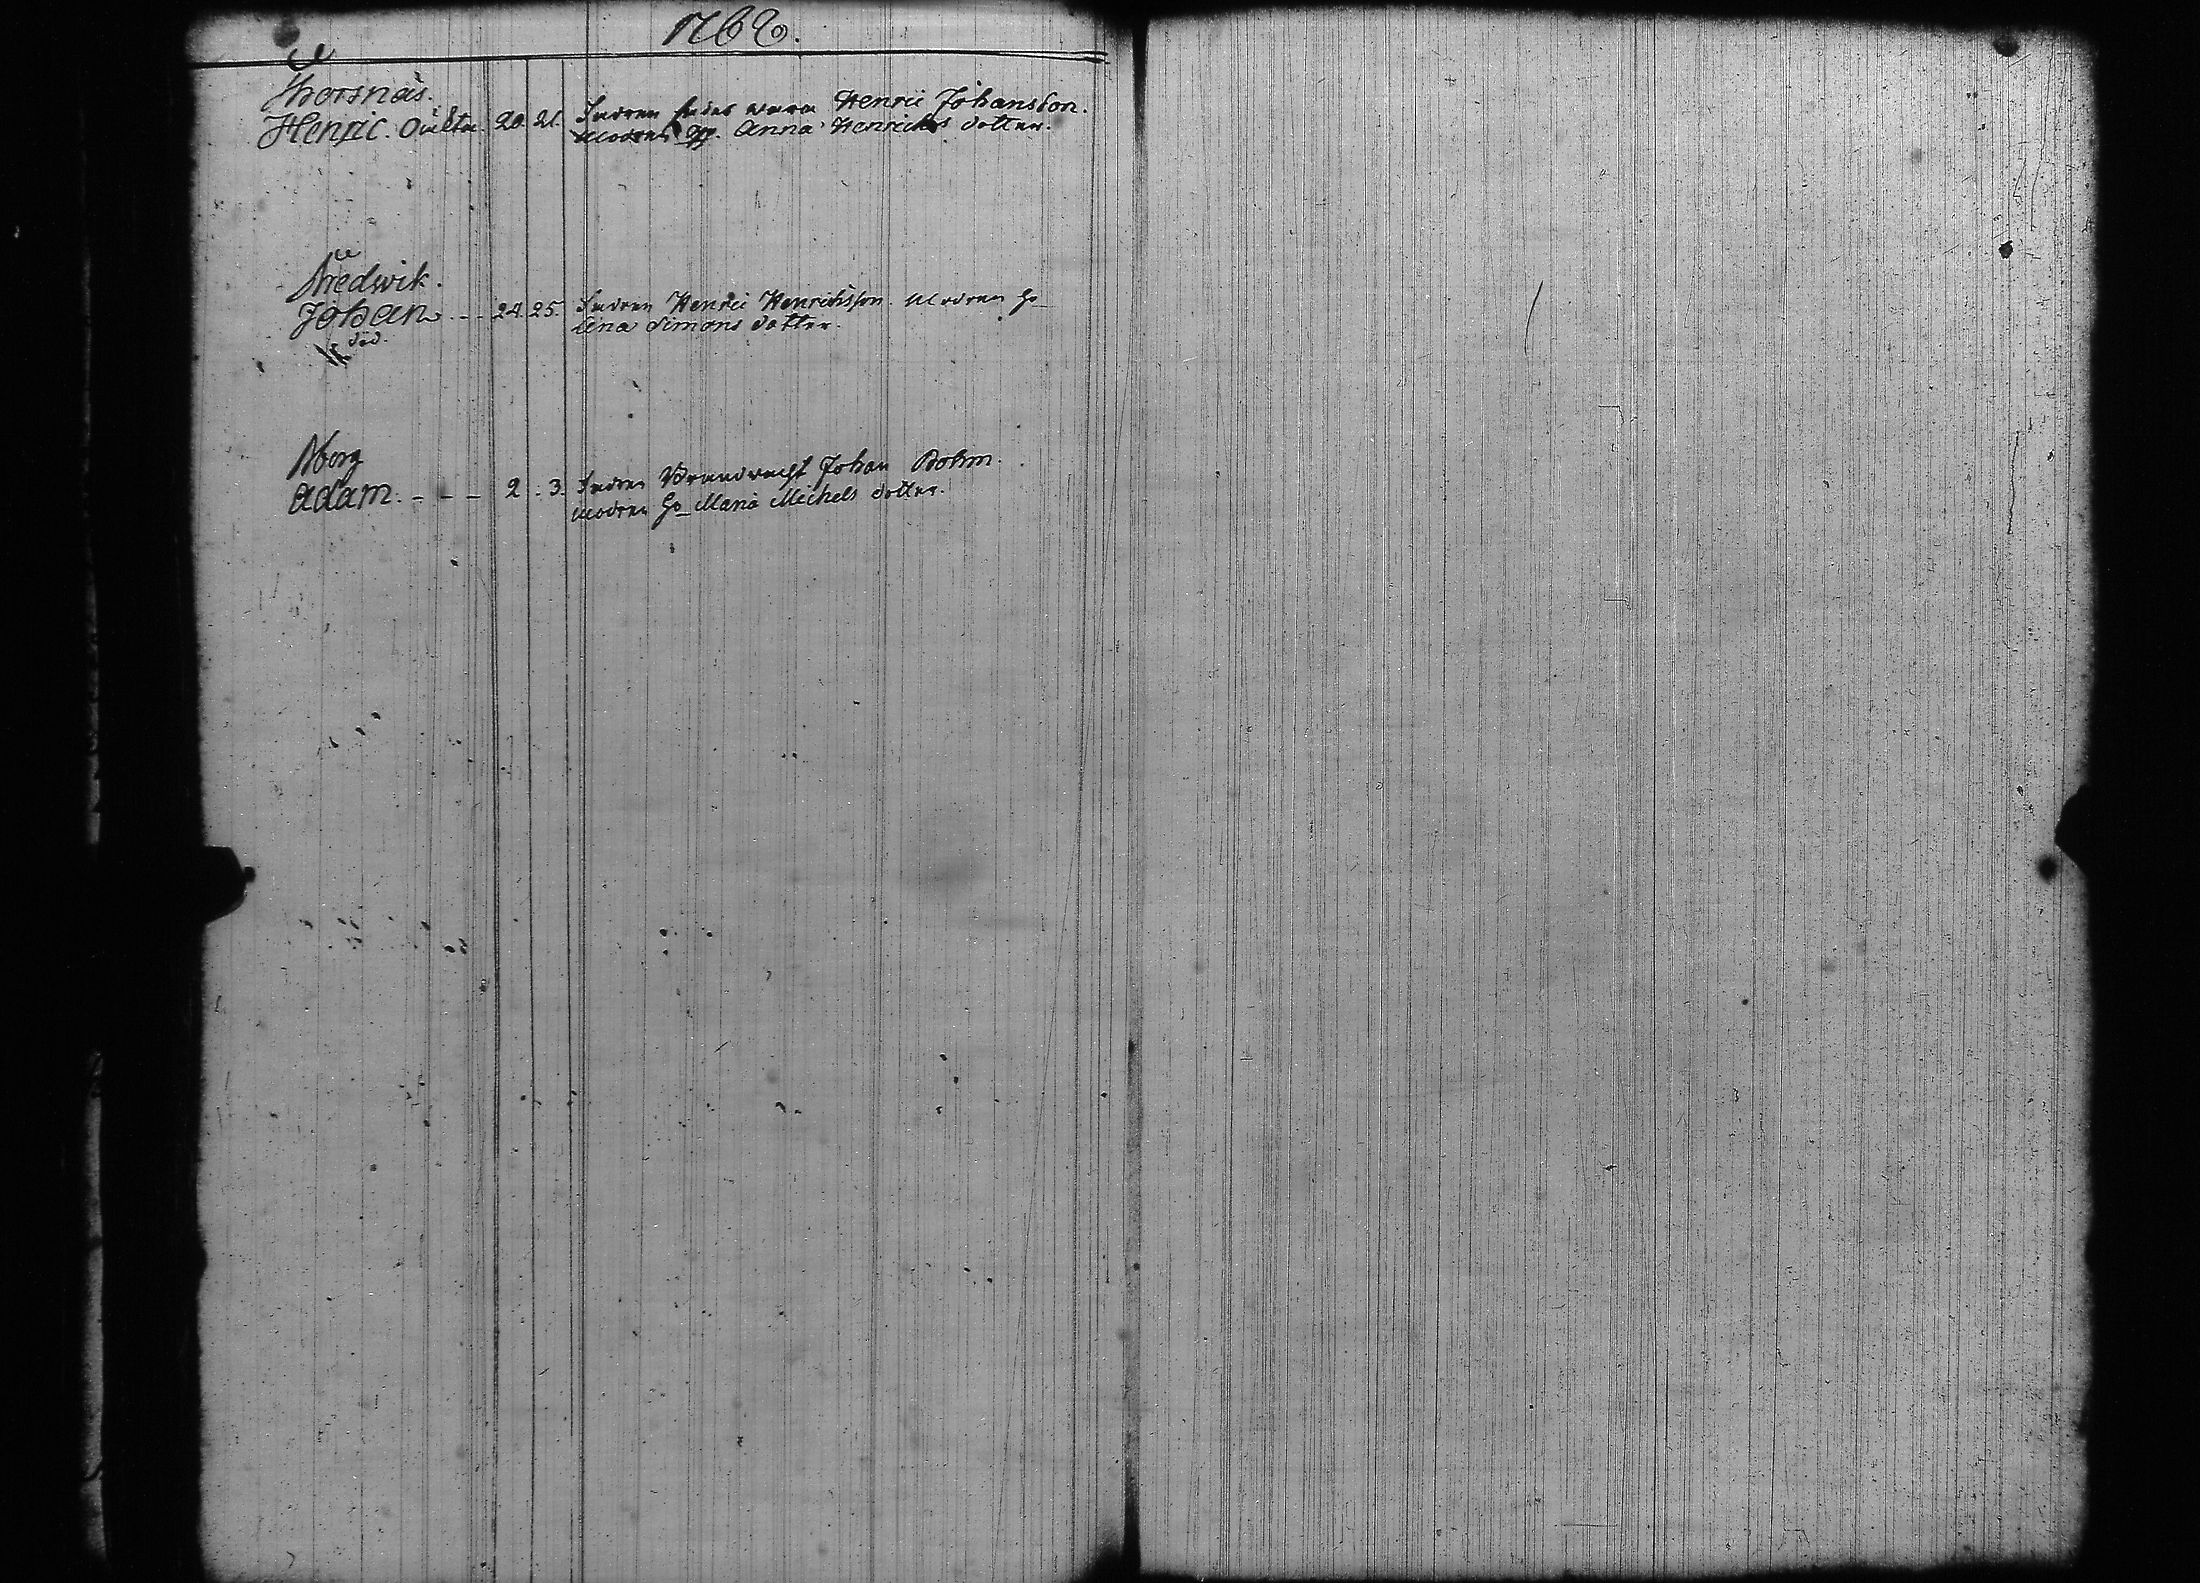 1762.
Thorsnäs.
Henric. Oäckta. 20. 21. Fadren sades wara Henric Johansson.
Modren Anna Henrichs dotter.
Bredwik.
Johan - - 24. 25. Fadren Henric Henrichsson. Modren H:o
Lena Simons dotter.
död.
Borg
Adam. - - - 2. 3. Fadren Brandwacht Johan Bohm.
Modren H:o Maria Michels dotter.